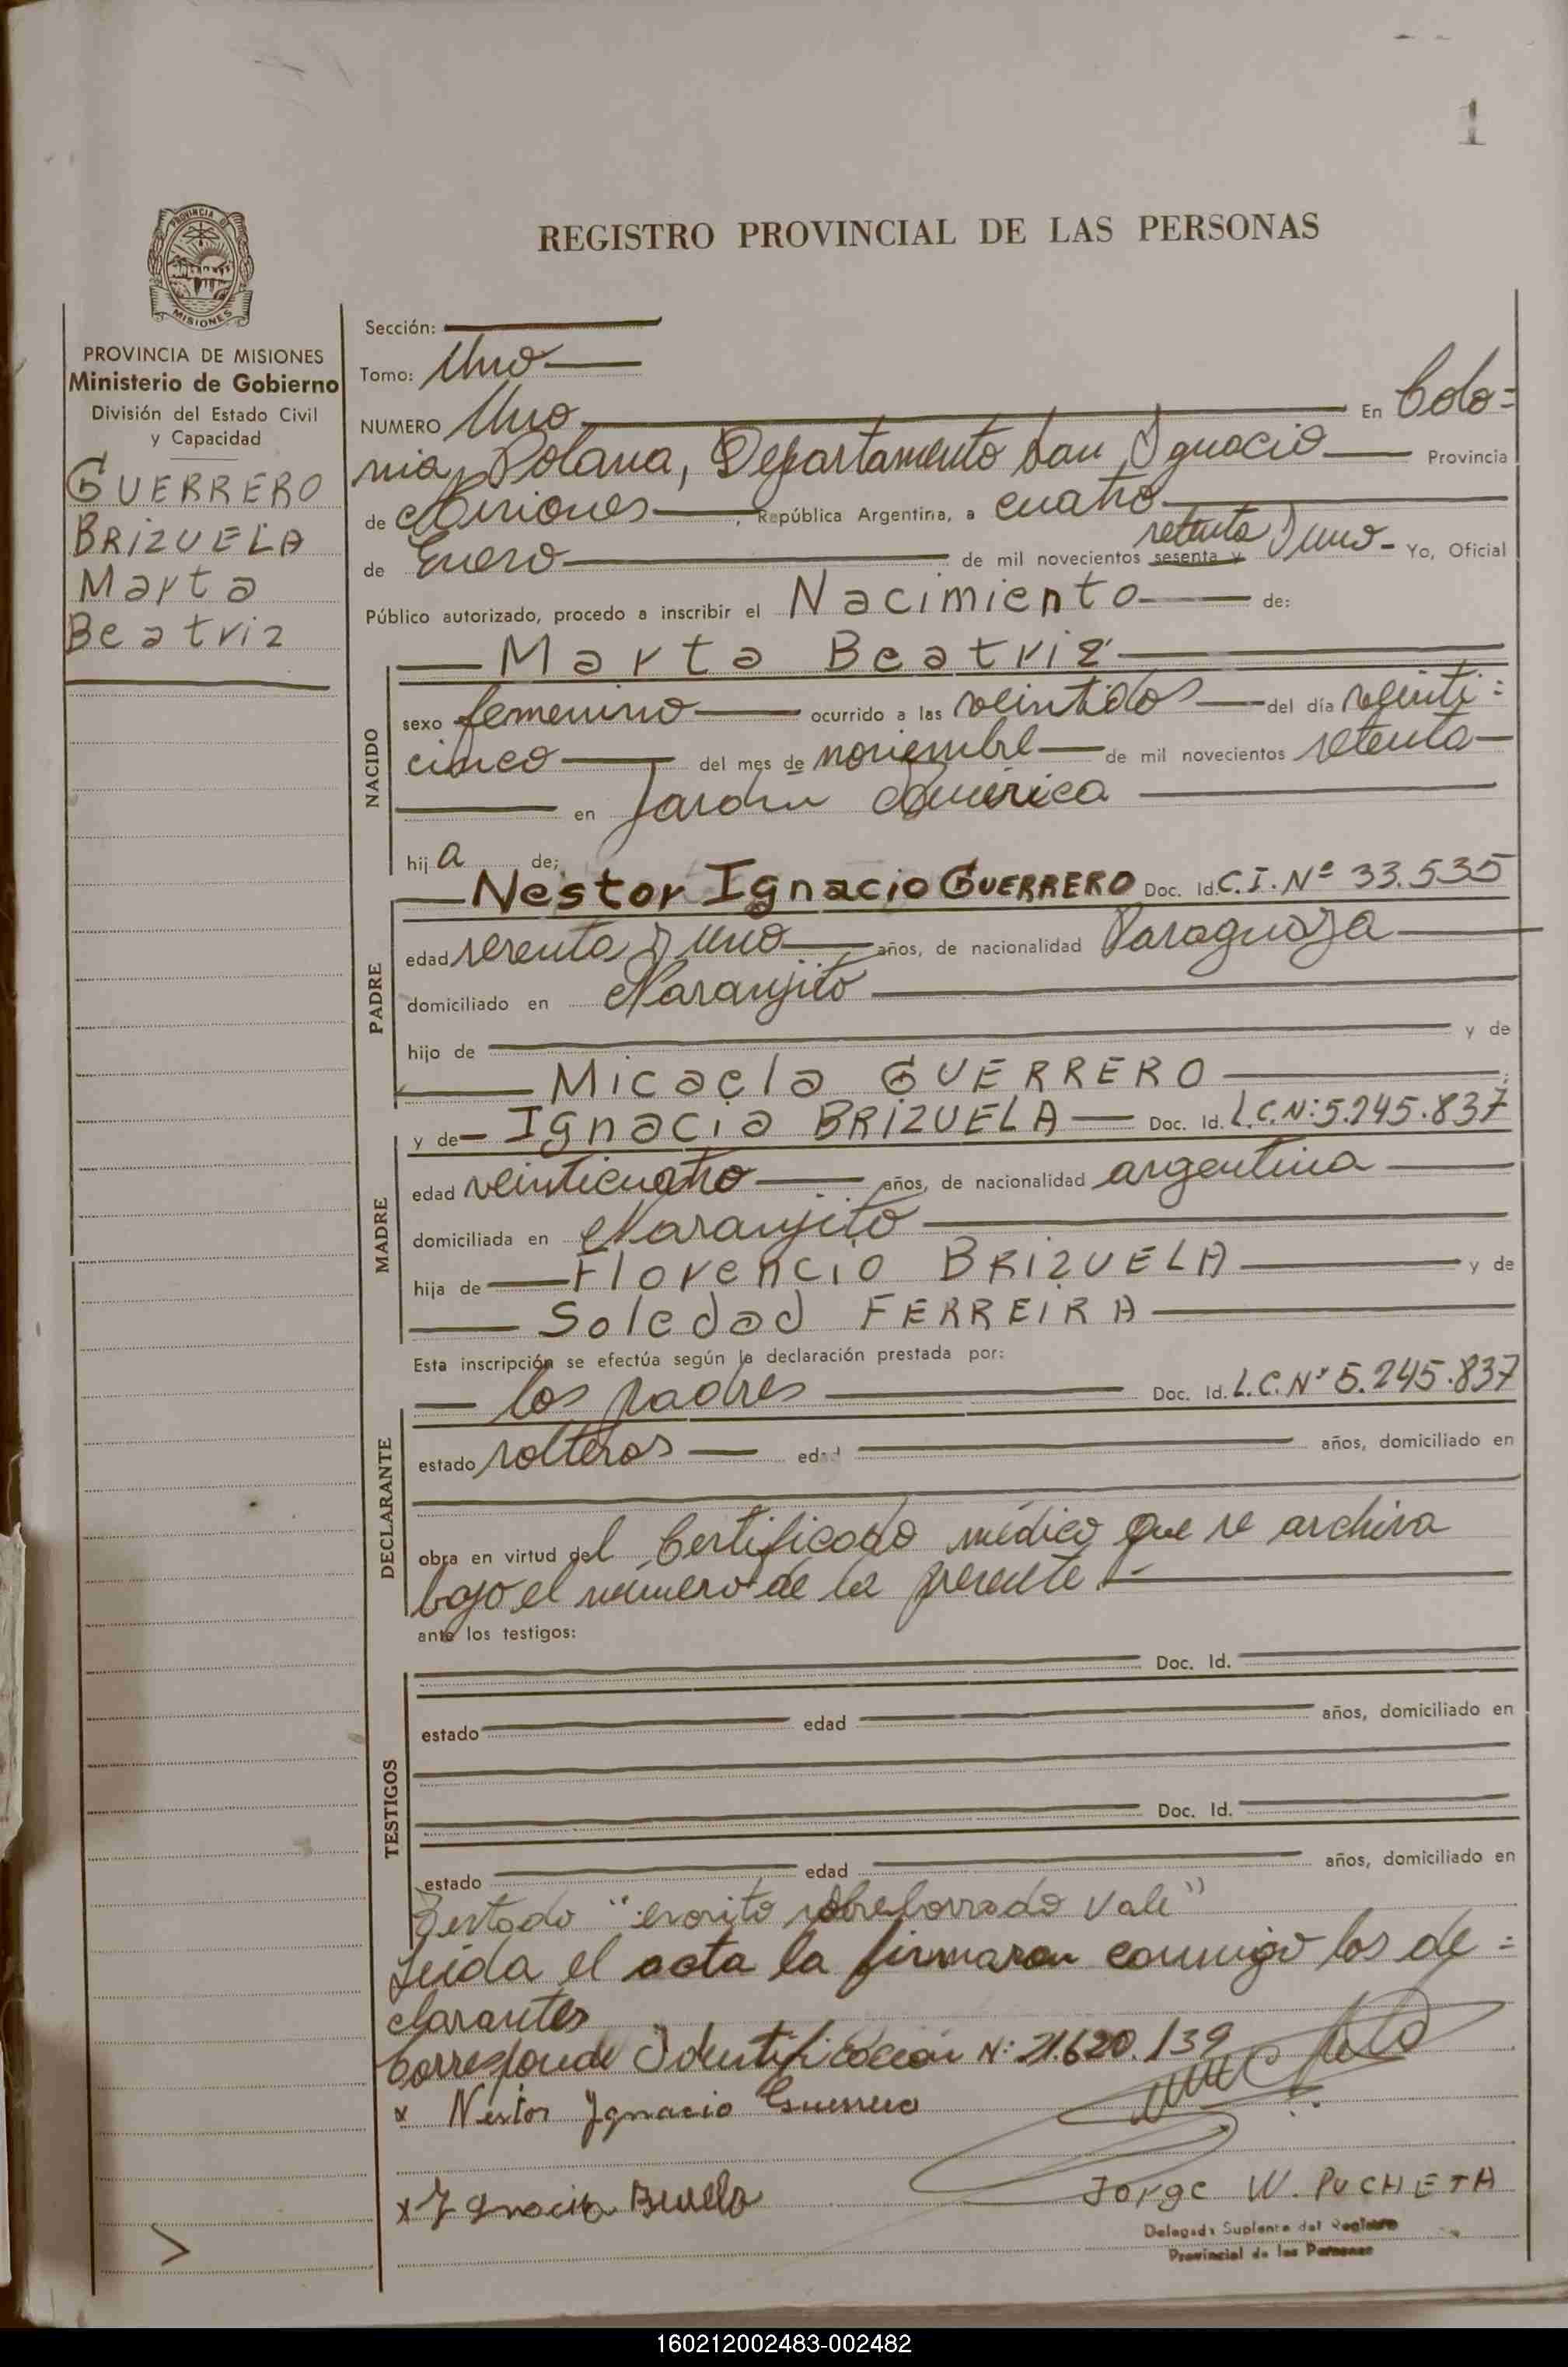 1
PROVINCIA DE
MISIONES
REGISTRO PROVINCIAL DE LAS PERSONAS
PROVINCIA DE MISIONES
Ministerio de Gobierno
División del Estado Civil
y Capacidad
GUERRERO
BRIZUELA
Marta
Beatriz
Sección:
Tomo: Uno
NUMERO Uno En Colo=
nia Polana, Departamento San Ignacio Provincia
de Misiones, República Argentina, a cuatro
de Enero de mil novecientos sesenta y setenta y uno - Yo, Oficial
Público autorizado, procedo a inscribir el Nacimiento de:
Marta Beatriz
NACIDO
sexo femenino ocurrido a las veintidos del día veinti=
cinco del mes de noviembre de mil novecientos setenta
en Jardin América
hija de:
PADRE
Nestor Ignacio GUERRERO Doc. Id. C.I. Nº 33.535
edad sesenta y uno años, de nacionalidad Paraguaya
domiciliado en Naranjito
hijo de y de
Micaela GUERRERO
MADRE
y de Ignacia BRIZUELA Doc. Id. L.C.N: 5.245.837
edad veinticuatro años, de nacionalidad argentina
domiciliada en Naranjito
hija de Florencio BRIZUELA y de
Soledad FERREIRA
Esta inscripción se efectúa según la declaración prestada por:
DECLARANTE
los padres Doc. Id. L.C. Nº 5.245.837
estado solteros edad años, domiciliado en
obra en virtud del Certificado médico que se archiva
bajo el número de la presente.-
ante los testigos:
TESTIGOS
Doc. Id.
estado edad años, domiciliado en
Doc. Id.
estado edad años, domiciliado en
Testado "escrito sobreborrado vale"
Leida el acta la firmaron conmigo los de=
clarantes
Corresponde Identificación Nº 21.620.139
x Nestor Ignacio Guerrero
x Ignacia
Jorge W. PUCHETA
Delegado Suplente del Registro
Provincial de las Personas
160212002483-002482